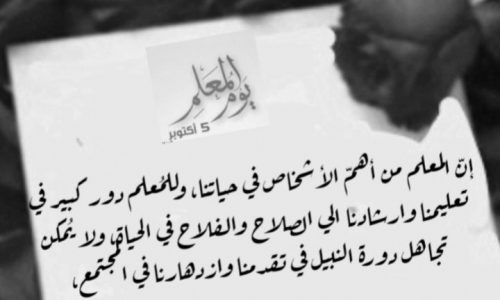 يوم المعلم
5 أكتوبر
إنّ المعلم من أهمّ الأشخاص في حياتنا، وللمُعلم دور كبير في
تعليمنا وارشادنا الي الصلاح والفلاح في الحياة، ولا يُمكن
تجاهل دورة النبيل في تقدمنا وازدهارنا في المجتمع،